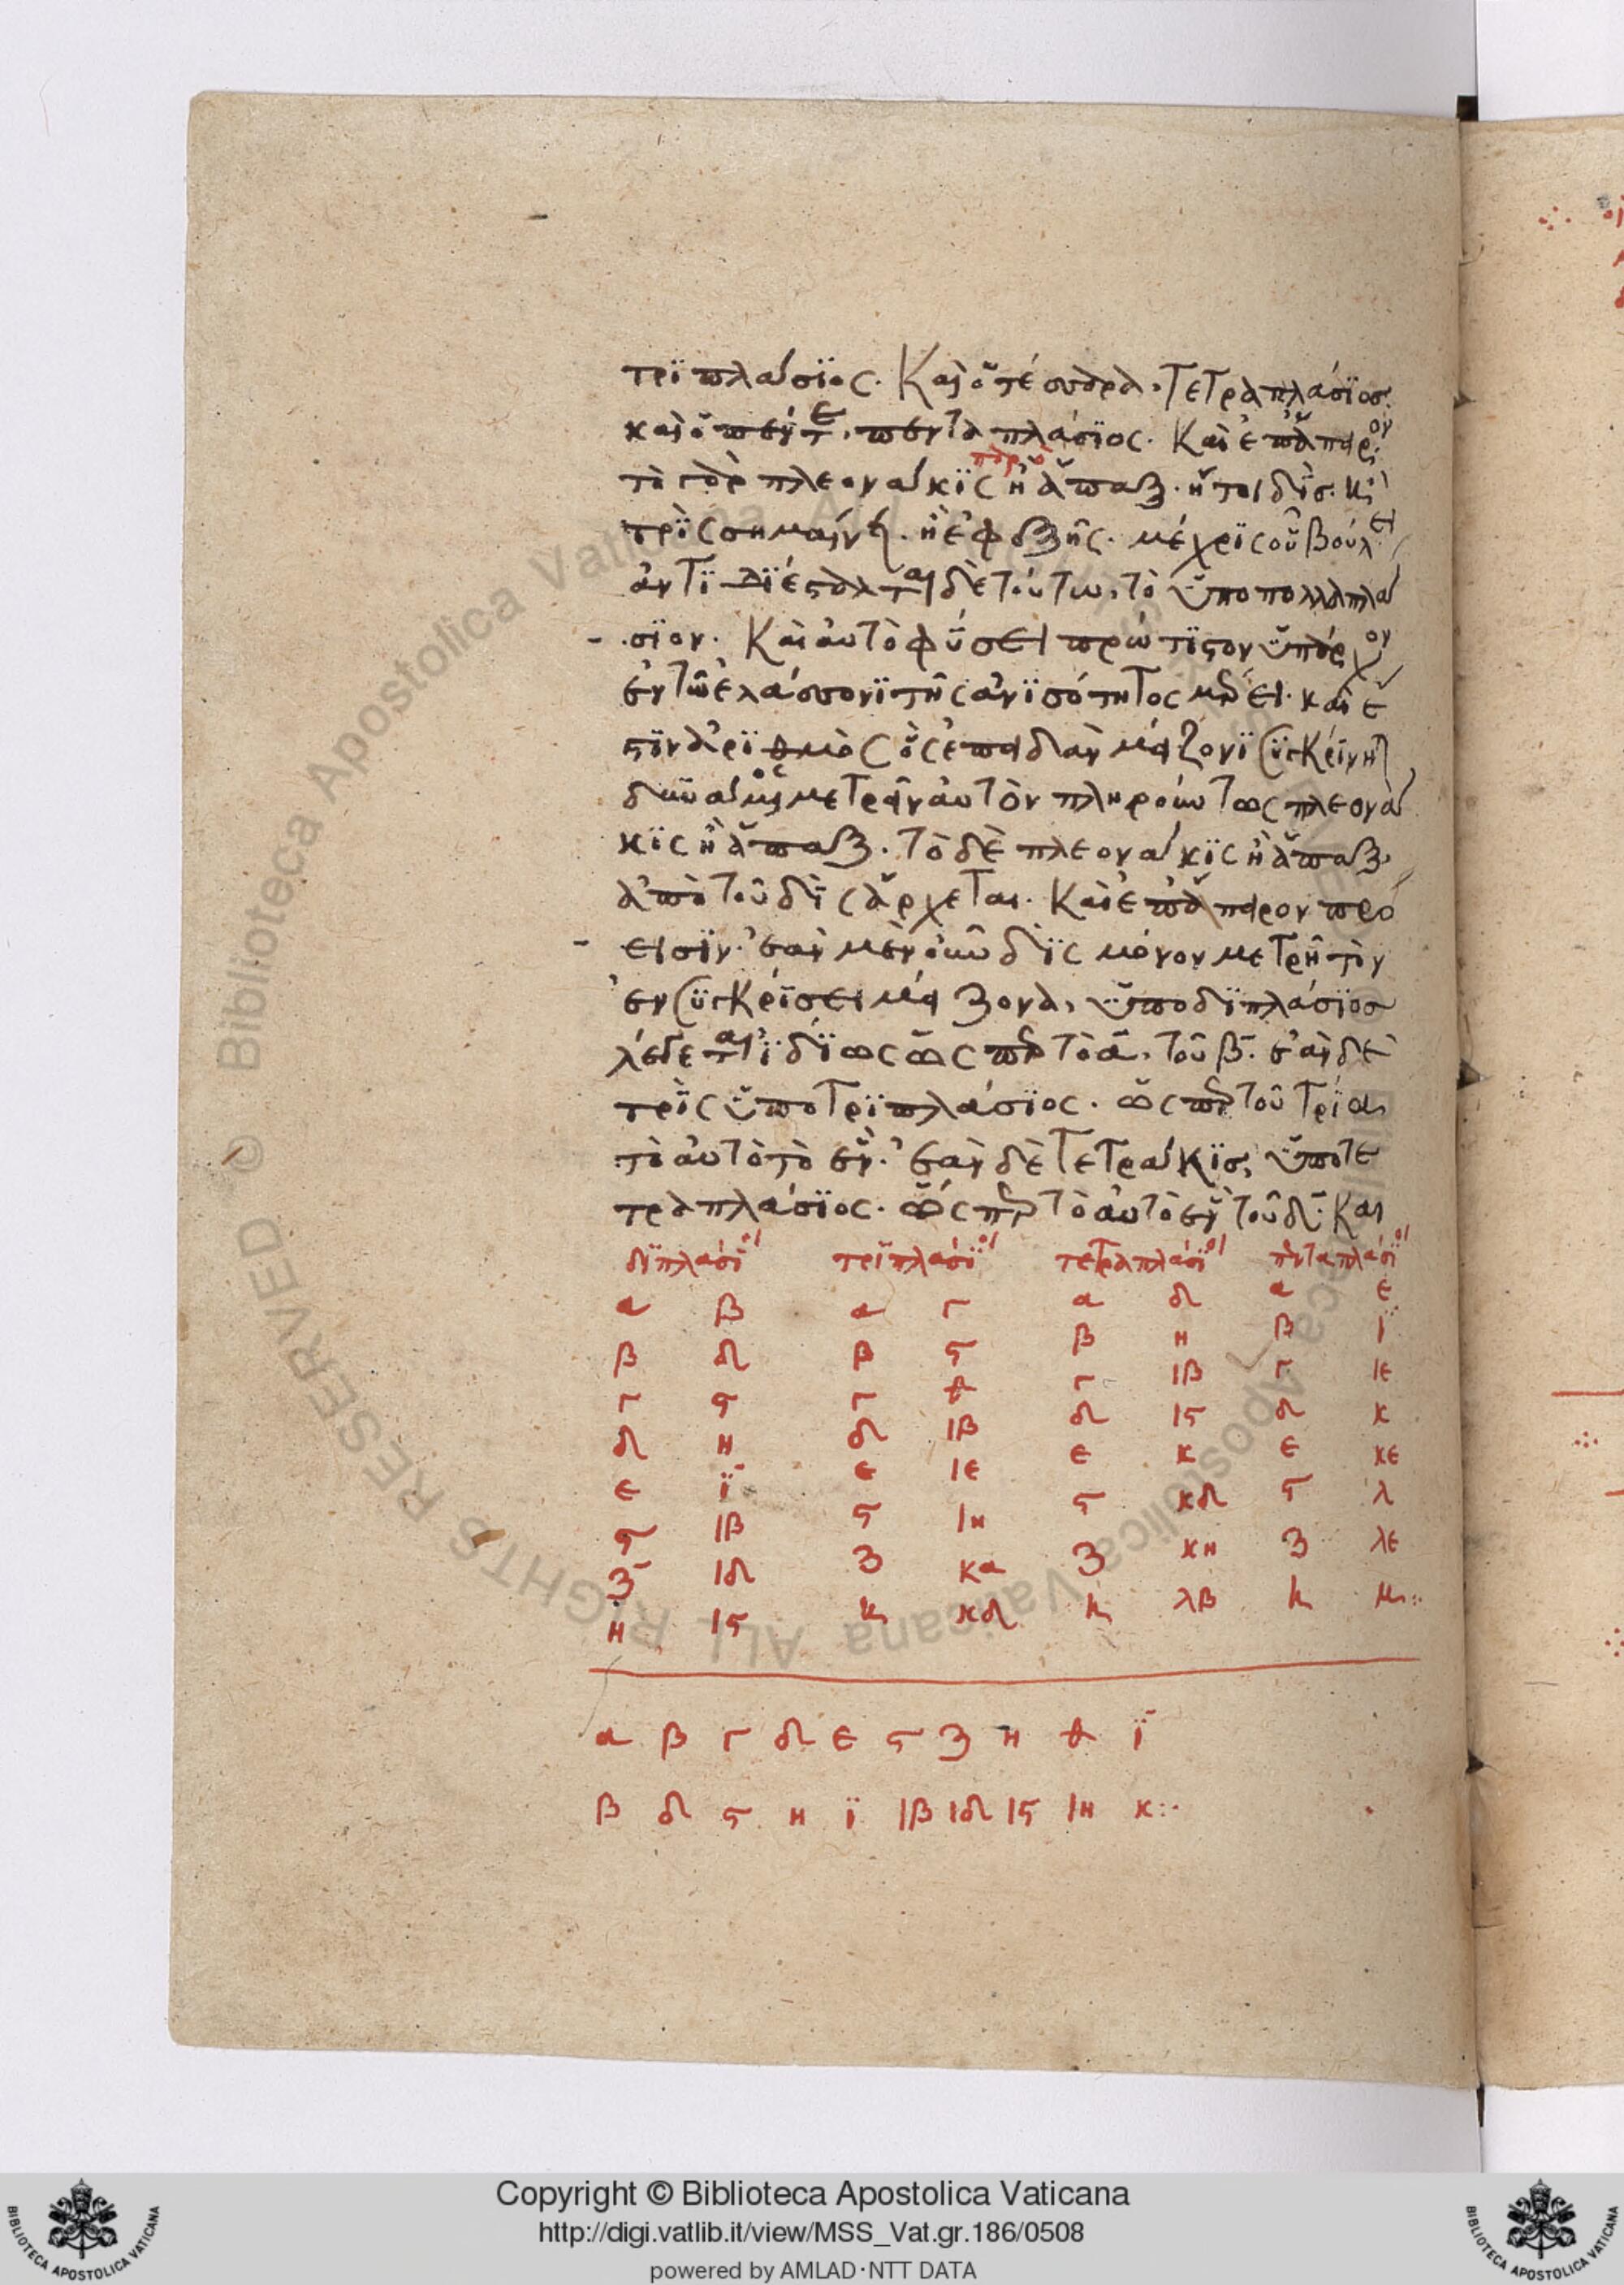 τριπλάσιος. Καὶ ὁ τέσσαρα, τετραπλάσιος.
καὶ ὁ πέντε, πενταπλάσιος. Καὶ ἐπ' ἄπειρον
τὸ γὰρ πλεονάκις ἢ ἅπαξ. ἤτοι δὶς. καὶ
τρὶς σημαίνει. ἢ ἐφεξῆς. μέχρις οὗ βούλει
ἀντιδιέσταλται δὲ τούτω, τὸ ὑποπολλαπλά
σιον. Καὶ αὐτὸ φύσει πρώτιστον ὑπάρχον
ἐν τῶ ἐλάσσονι τῆς ἀνισότητος μέρει. καὶ ἔ
στιν ἀριθμὸς ὃς ἐπειδὰν μείζονι συγκρίνηται
δυνάμενος μετρεῖν αὐτὸν πληρούντως πλεονά
κις ἢ ἅπαξ. Τὸ δὲ πλεονάκις ἢ ἅπαξ.
ἀπὸ τοῦ δὶς ἄρχεται. Καὶ ἐπ' ἄπειρον πρό
εισιν. ἐὰν μὲν οὖν δὶς μόνον μετρῆ τὸν
ἐν συγκρίσει μείζονα, ὑποδιπλάσιος
λέγεται ἰδίως ὡς πρὸς τὸ α, τοῦ β. ἐὰν δὲ
τρὶς ὑποτριπλάσιος. ὡς πρὸς τοῦ τρία
τὸ αὐτὸ τὸ ἕν. ἐὰν δὲ τετράκις, ὑποτε
τραπλάσιος. ὡς πρὸς τὸ αὐτὸ ἓν τοῦ δ. Και
διπλάσιοι τριπλάσιοι τετραπλάσιοι πενταπλάσιοι
α β α γ α δ α ε
β δ β ϛ β η β ϊ
γ ϛ γ θ γ ιβ γ ιε
δ η δ ιβ δ ιϛ δ κ
ε ϊ ε ιε ε κ ε κε
ϛ ιβ ϛ ιη ϛ κδ ϛ λ
ζ ιδ ζ κα ζ κη ζ λε
η ιϛ η κδ η λβ η μ
α β γ δ ε ϛ ζ η θ ϊ
β δ ϛ η ϊ ιβ ιδ ιϛ ιη κ
Copyright © Biblioteca Apostolica Vaticana
http://digi.vatlib.it/view/MSS_Vat.gr.186/0508
powered by AMLAD·NTT DATA
BIBLIOTECA APOSTOLICA VATICANA
BIBLIOTECA APOSTOLICA VATICANA